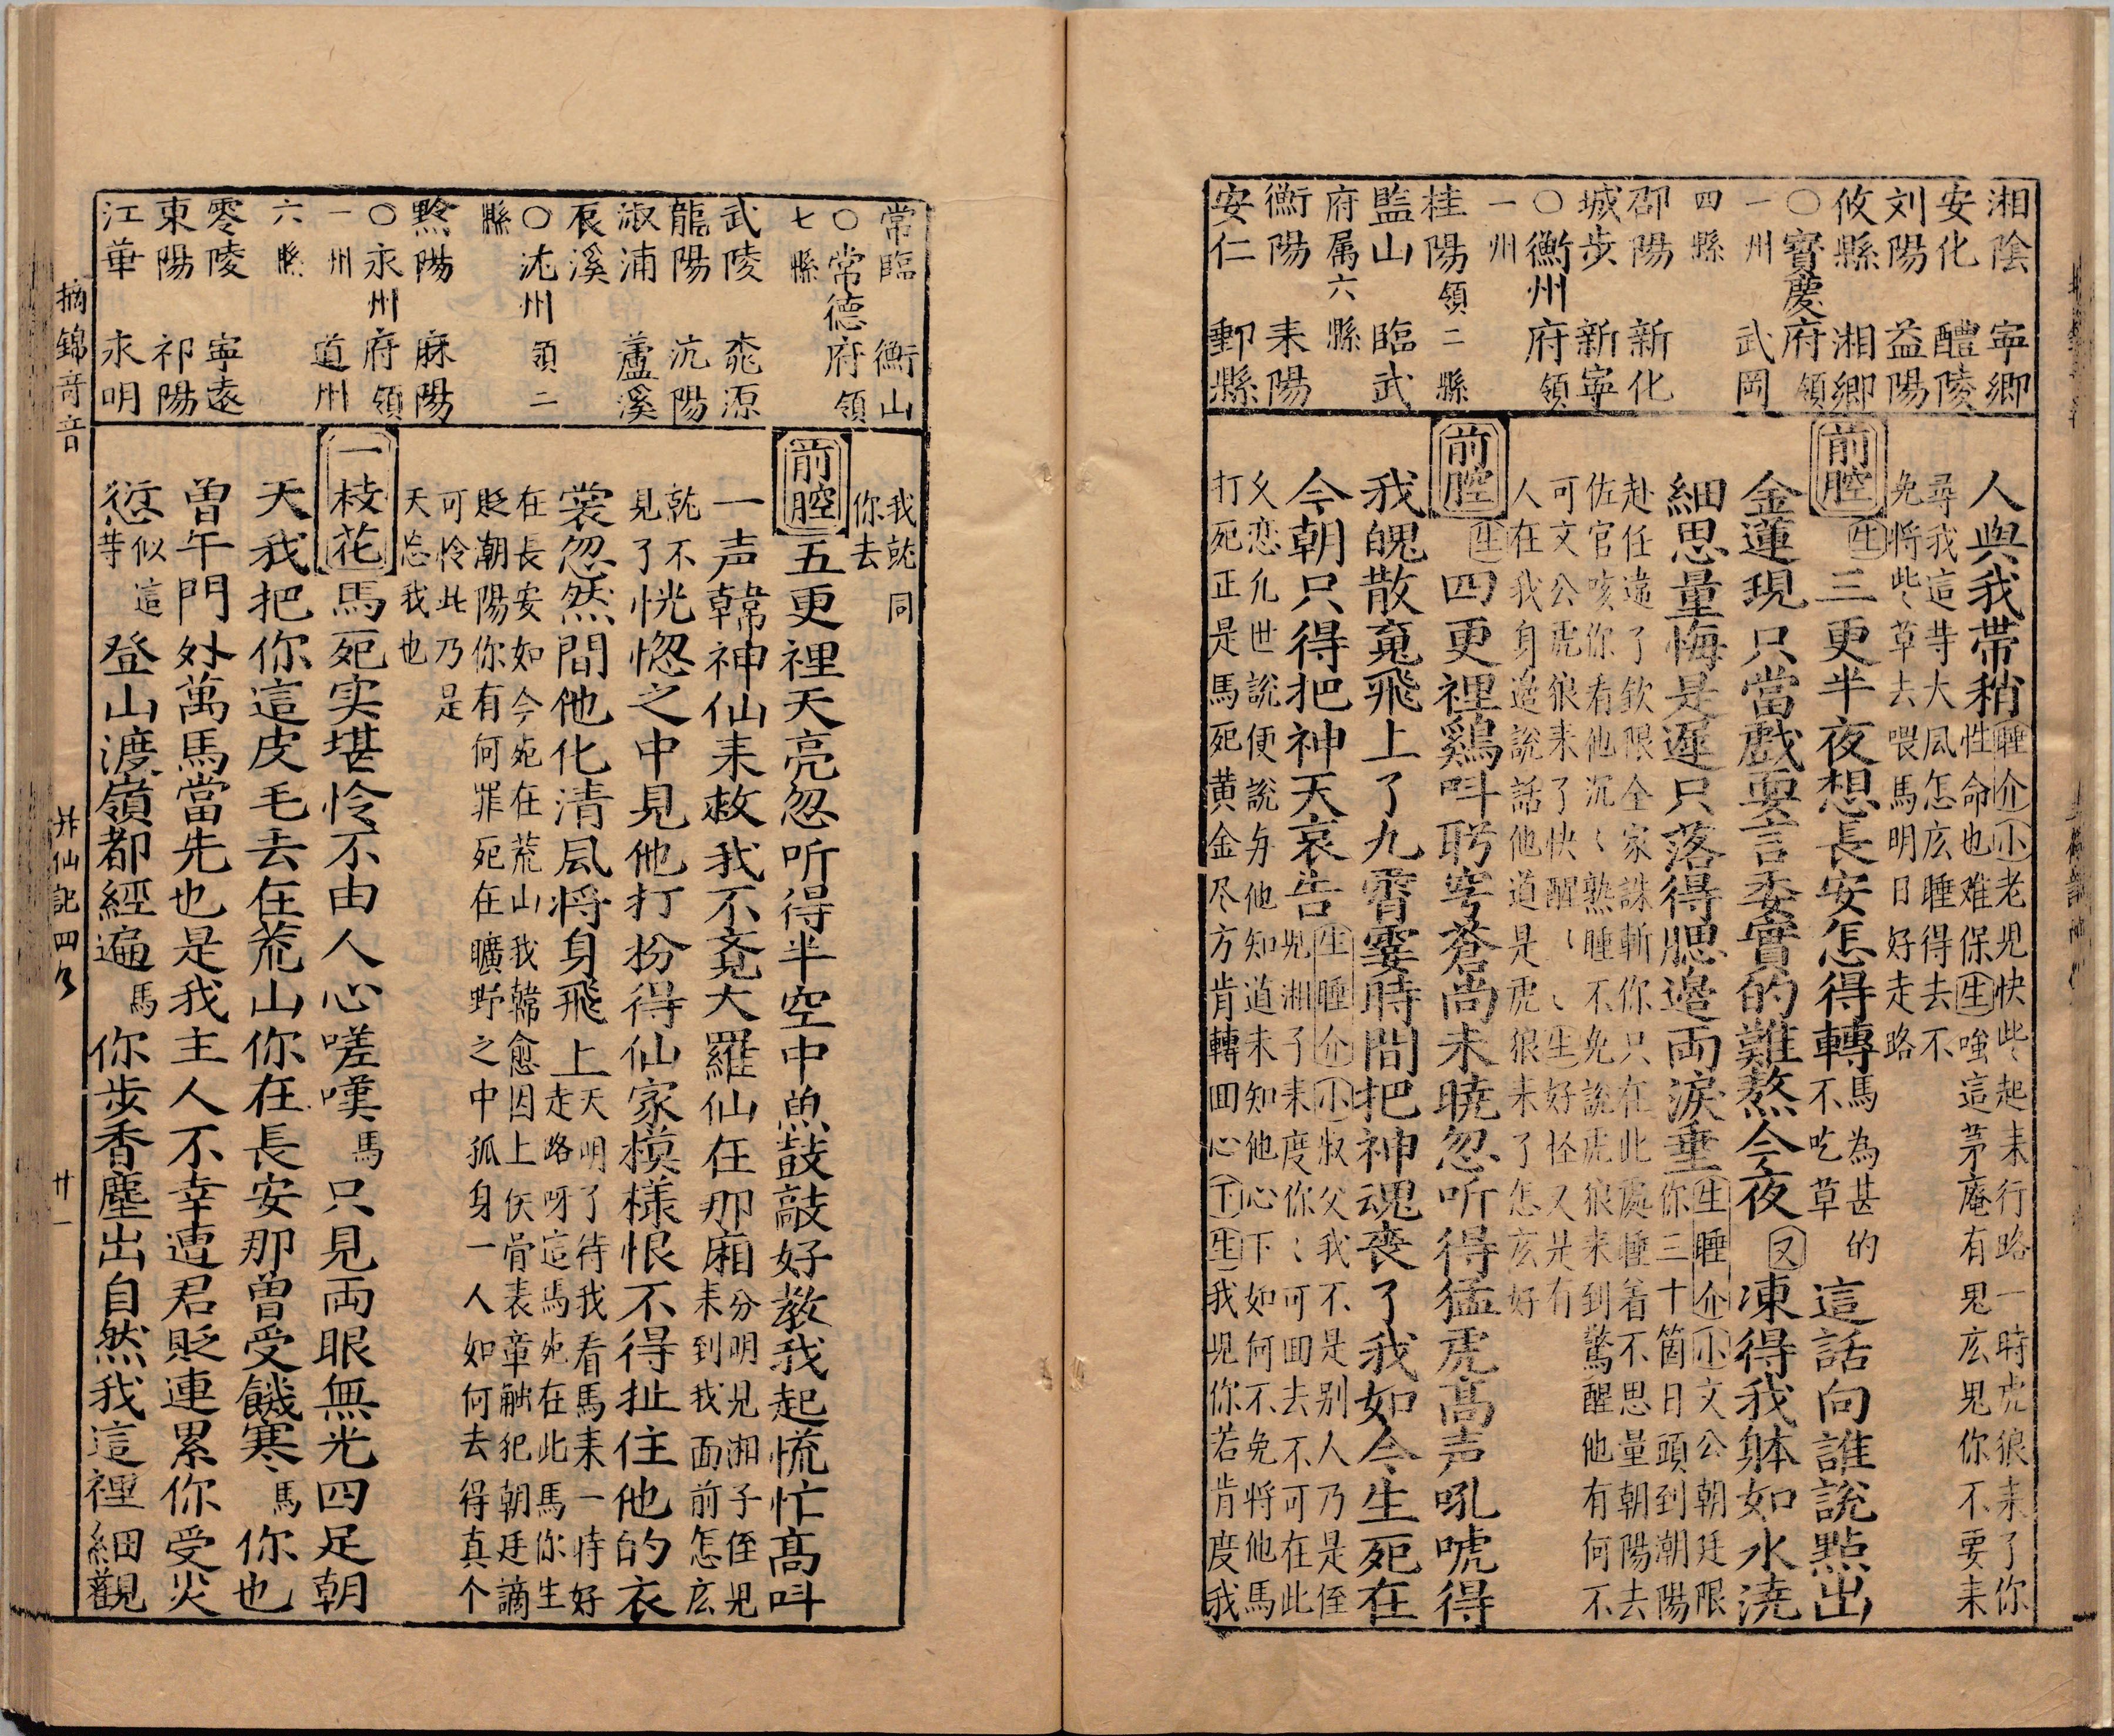 湘陰 寧鄉
安化 醴陵
刘陽 益陽
攸縣 湘鄉
○寶慶府領
一州 武岡
四縣
邵陽 新化
城步 新寧
○衡州府領
一州
桂陽領二縣
監山 臨武
府属六縣
衡陽 耒陽
安仁 酃縣
人與我帶稍睡介小老児快些起来行路一時虎狼来了你
性命也难保生嗤這茅庵有鬼庅鬼你不要来
尋我這䓁大風怎庅睡得去不
免將些草去喂馬明日好走路
前腔生三更半夜想長安怎得轉馬為甚的不吃草這話向誰說點出
金蓮現只當戲耍言委實的難熬今夜又凍得我躰如水澆
細思量悔是遲只落得腮邉両淚垂生睡介小文公朝廷限
你三十箇日頭到潮陽
赴任違了欽限全家誅斬你只在此處睡着不思量朝陽去
佐官咳你看他沉〻熟睡不免說虎狼来到驚醒他有何不
可文公虎狼来了快醒〻〻生好怪又是有
人在我身邉說話他道是虎狼来了怎亥好
前腔生四更裡鷄呌聘穹蒼尚未曉忽听得猛虎高声吼唬得
我魄散䰟飛上了九霄霎時間把神魂喪了我如今生死在
今朝只得把神天哀告生睡介小叔父我不是别人乃是侄
児湘子来度你〻可囬去不可在此
久恋凡世說便說与他知道未知他心下如何不免將他馬
打死正是馬死黄金尽方肯轉囬心下生我児你若肯度我
常臨 衡山
○常德府領
七縣
武陵 桃源
龍陽 沅陽
溆浦 蘆溪
辰溪
○沅州領二
縣
黔陽 麻陽
○永州府領
一州 道州
六縣
零陵 寧遠
東陽 祁陽
江華 永明
我就同
你去
前腔五更裡天亮忽听得半空中魚鼓敲好教我起慌忙高呌
一声韓神仙来救我不竟大羅仙在那廂分明見湘子侄児
来到我面前怎庅
就不
見了恍惚之中見他打扮得仙家模様恨不得扯住他的衣
裳忽然間他化清風将身飛上天明了待我看馬来一時好
走路呀這馬死在此馬你生
在長安如今死在荒山我韓愈因上佛骨表章觸犯朝廷謫
貶潮陽你有何罪死在曠野之中孤身一人如何去得真个
可怜此乃是
天忘我也
一枝花馬死実堪怜不由人心嗟嘆馬只見両眼無光四足朝
天我把你這皮毛去在荒山你在長安那曽受饑寒馬你也
曽午門外萬馬當先也是我主人不幸遭君貶連累你受災
愆似這䓁登山渡嶺都經遍馬你步香塵出自然我這裡細觀
摘錦竒音 升仙記四久 廿一